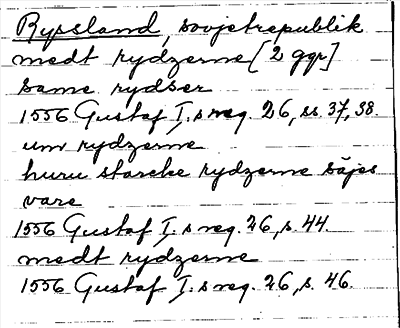 Ryssland, sovjetrepublik
medt rydzerne [2 ggr]
same rydser
1556 Gustaf I.s reg. 26, ss. 37, 38.
um rydzerne
huru starcke rydzerne säjes
vare
1556 Gustaf I.s reg. 26, s. 44.
medt rydzerne
1556 Gustaf I.s reg. 26, s. 46.